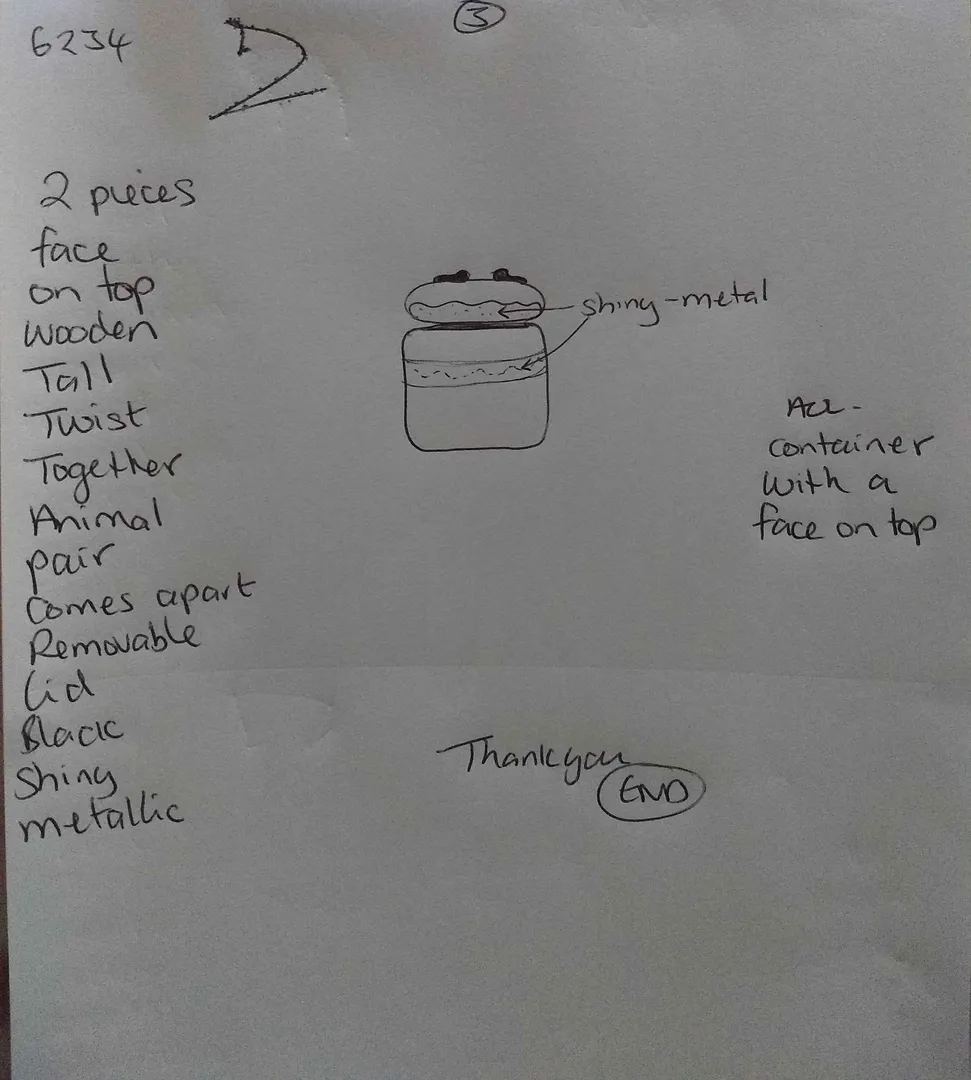 3
6234
2 pieces
face
on top
wooden
Tall
Twist
Together
Animal
pair
Comes apart
Removable
lid
Black
Shiny
metallic
shiny-metal
container
with a
face on top
Thankyou
END